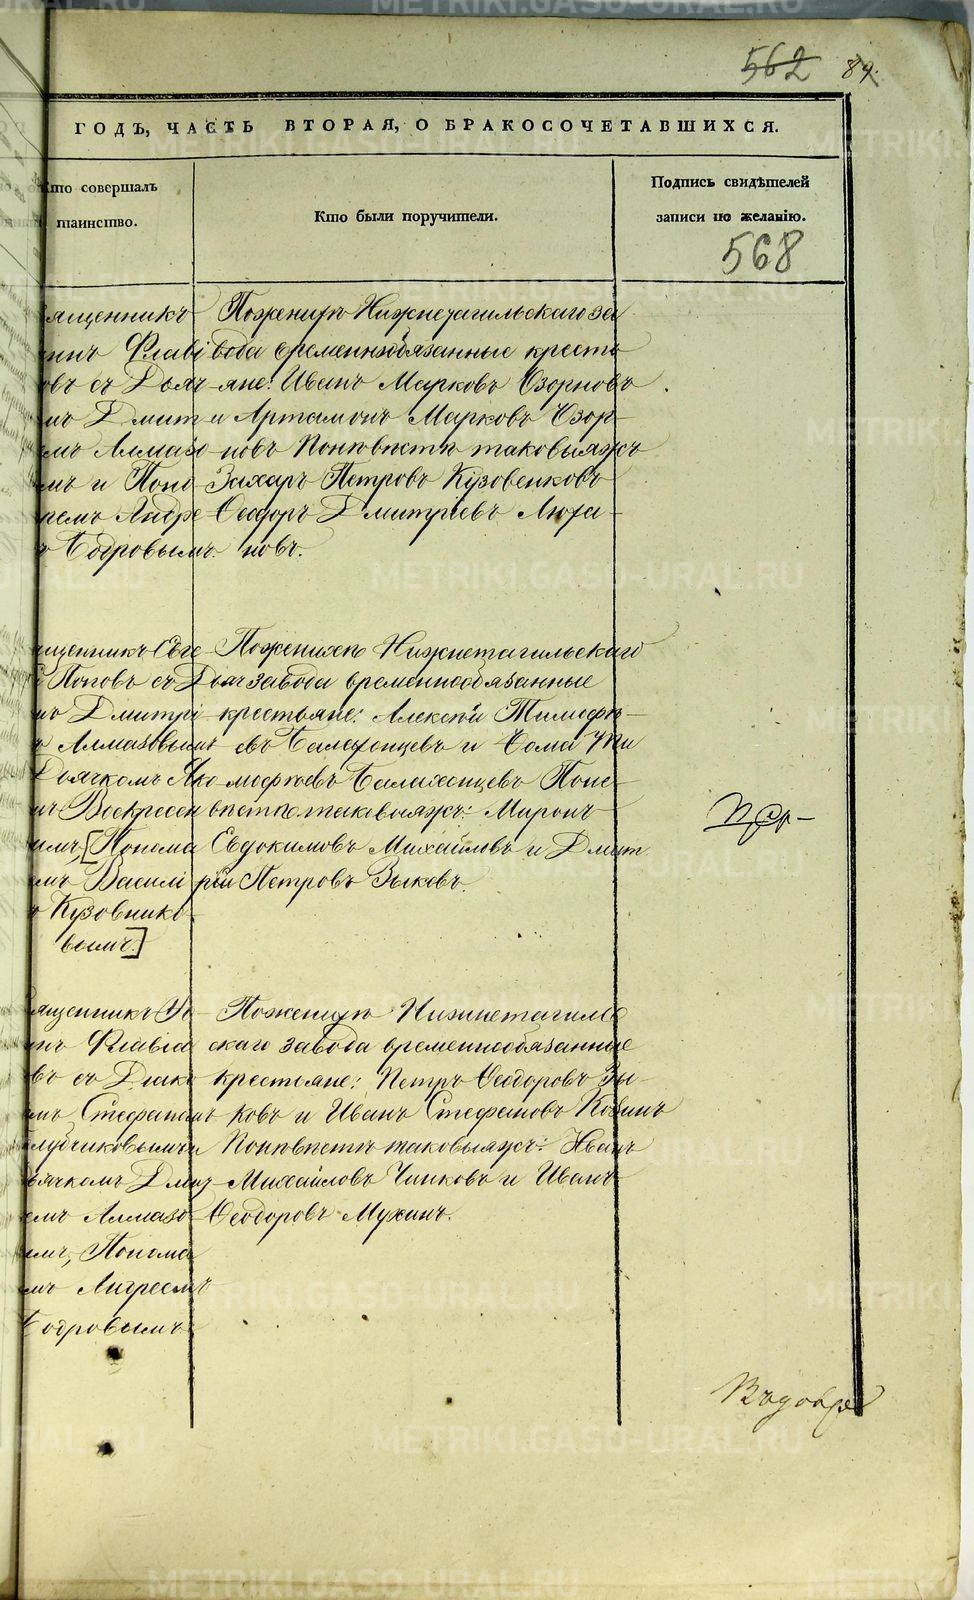 562 89.
ГОДЪ, ЧАСТЬ ВТОРАЯ, О БРАКОСОЧЕТАВШИХСЯ.
Кто совершалъ
таинство.
Кто были поручители.
Подпись свидѣтелей
записи по желанію.
568
ященникъ
инъ Флаві
овъ съ Дьяч
мъ Дмит
емъ Алмазо
мъ и Поно
ремъ Андре
ъ Бобровымъ.
По женихѣ Нижнетагильскаго за
вода временнообязанные кресть
яне: Иванъ Марковъ Озорновъ
и Артамонъ Марковъ Озор-
новъ По невѣстѣ таковыяжъ
Захаръ Петровъ Кузовенковъ
Ѳеодоръ Дмитріевъ Люха-
новъ.
ященникъ Евге
й Поповъ съ Дьяч
мъ Дмитрі
ъ Алмазовымъ
Дьячкомъ Яко
мъ Воскресен
имъ, [Понома
емъ Василі
ъ Кузовнико
вымъ.]
По женихѣ Нижнетагильскаго
завода временнообязанные
крестьяне: Алексѣй Тимофѣ-
евъ Балахонцевъ и Ѳома Ти
мофѣевъ Балахонцевъ По не-
вѣстѣ таковыяжъ: Миронъ
Евдокимовъ Михайловъ и Дмит
рій Петровъ Зыковъ.
Священникъ Іо
нъ Флавіа
въ съ Дьяко
мъ Стефаномъ
лубчиковымъ и
ьячкомъ Дмит
емъ Алмазо
ымъ, Понома
мъ Андреемъ
Бобровымъ
По женихѣ Нижнетагиль
скаго завода временнообязанные
крестьяне: Петръ Ѳеодоровъ Зы-
ковъ и Иванъ Стефановъ Кобинъ
По невѣстѣ таковыяжъ: Иванъ
Михайловъ Чинковъ и Иванъ
Ѳеодоровъ Мухинъ.